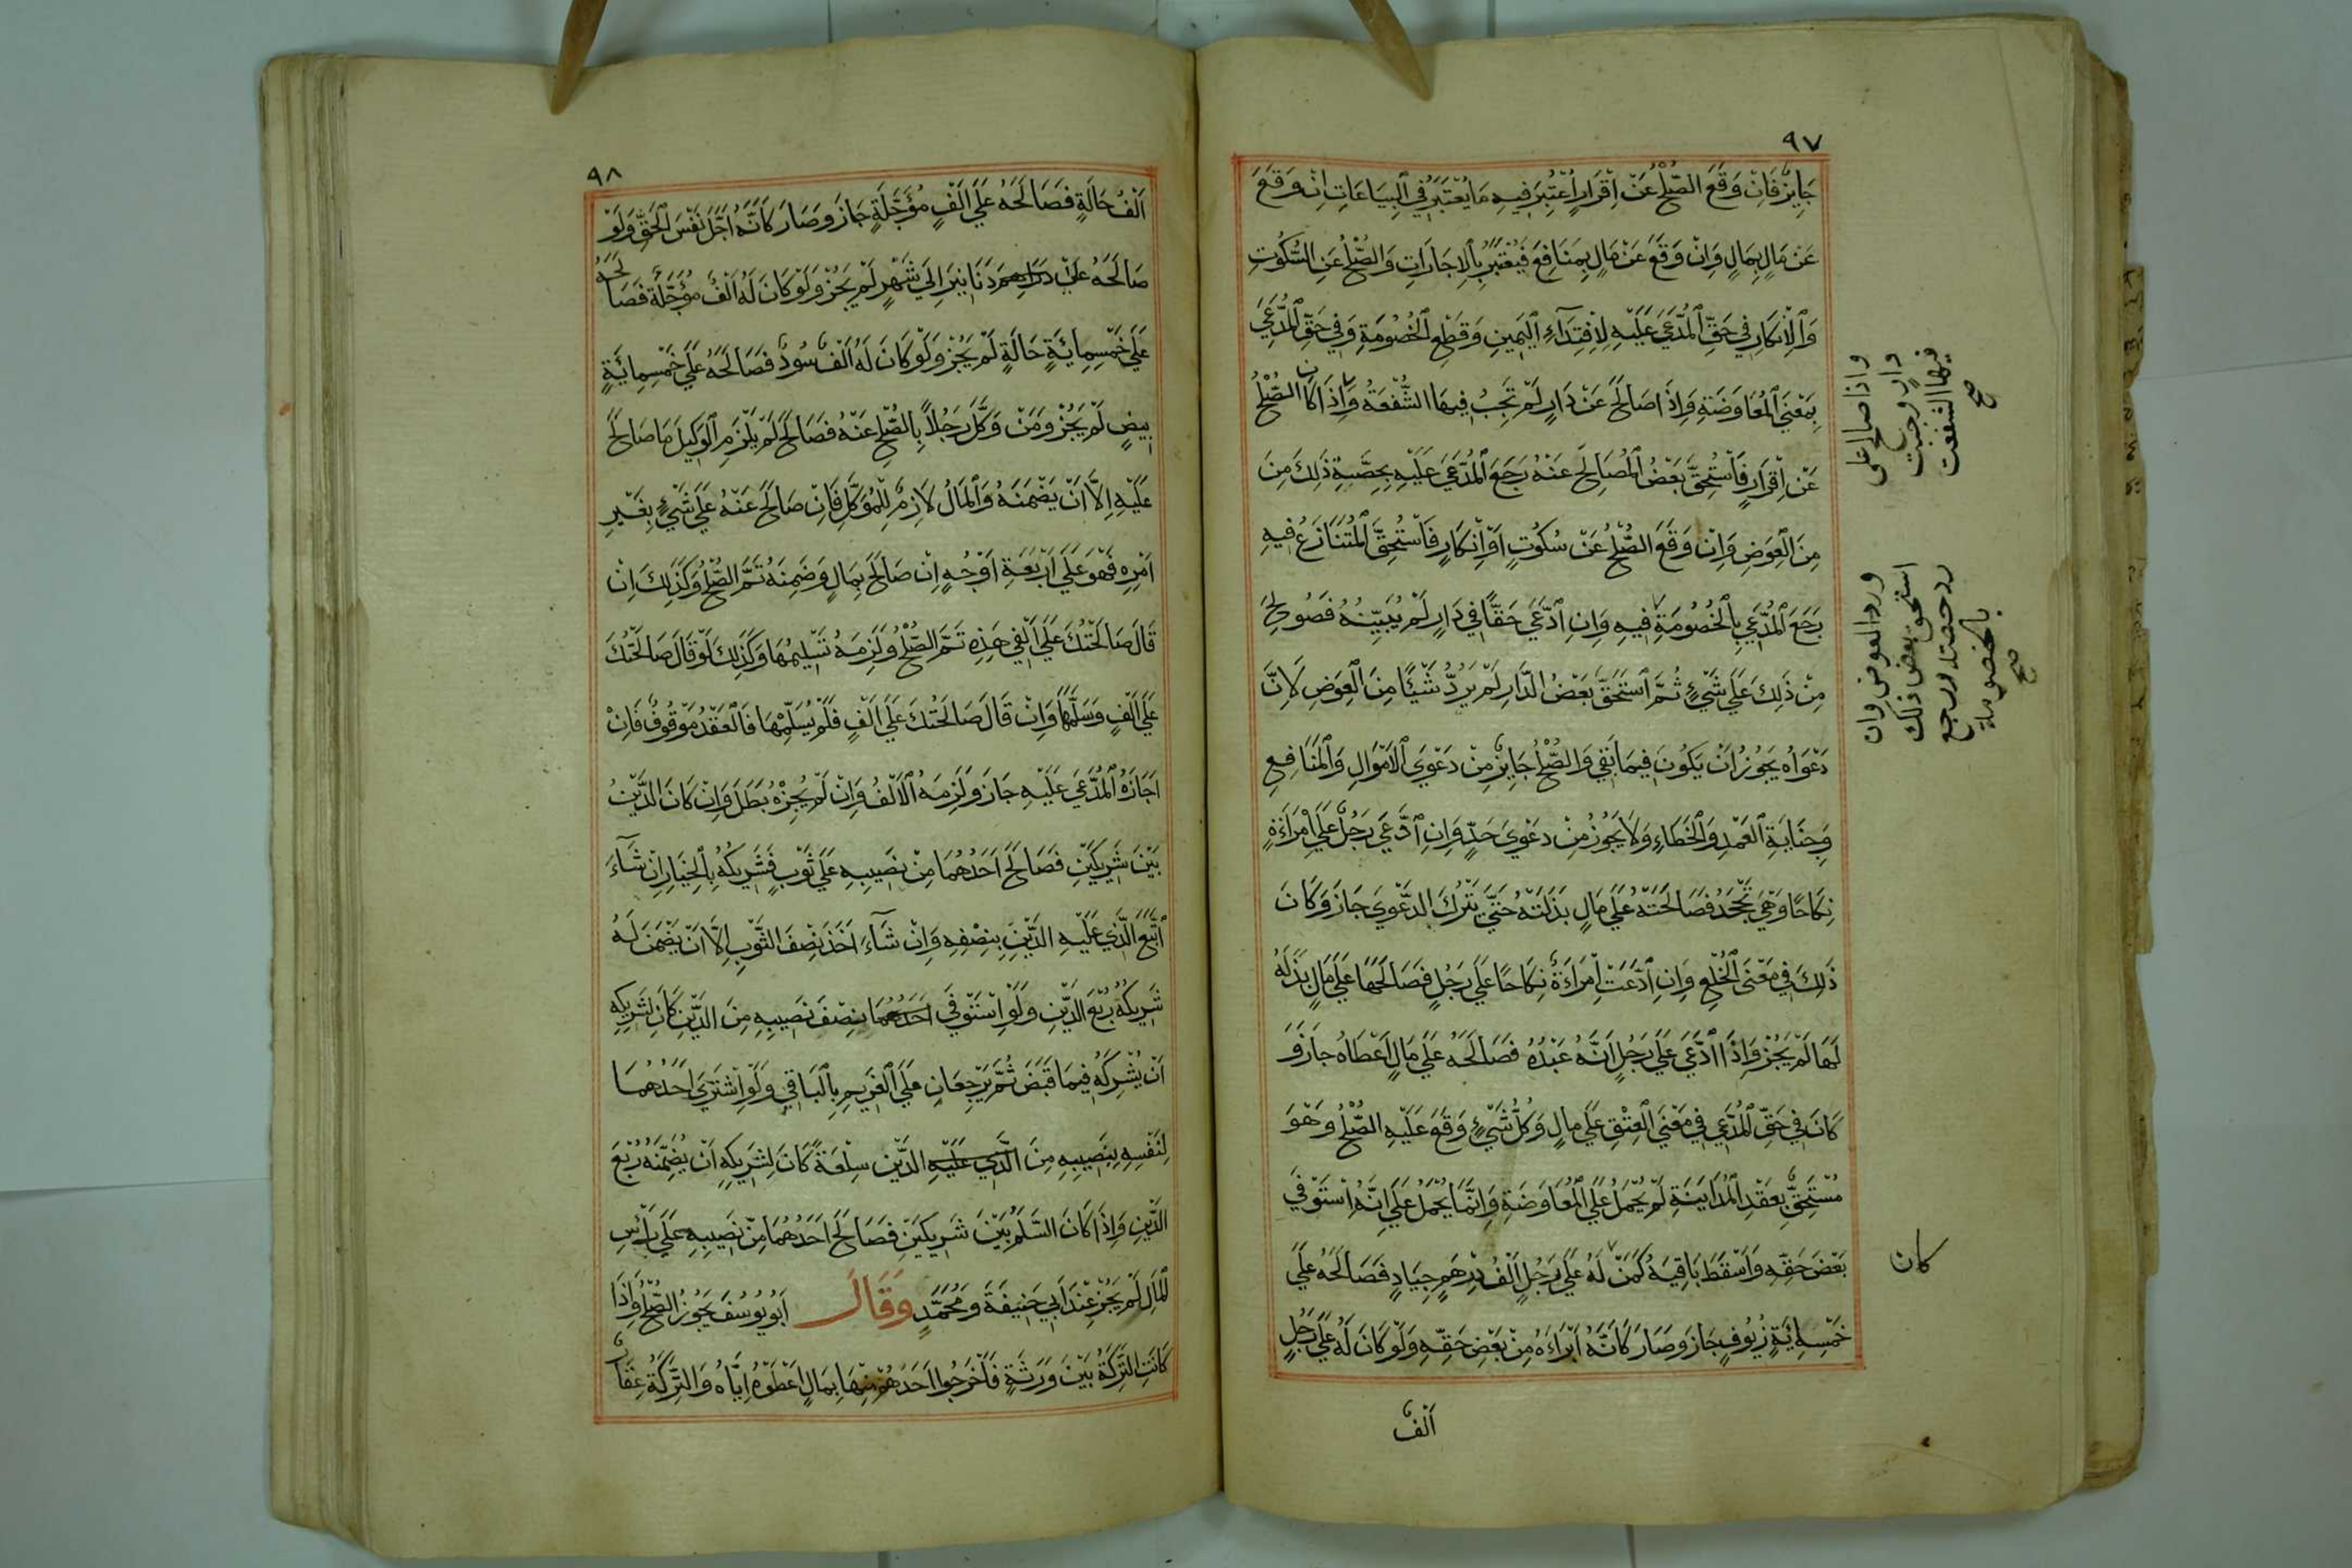 ٩٧
جَايِزٌ فَاِنْ وَقَعَ الصُّلْحُ عَنْ اِقْرَارٍ اُعْتُبِرَ فِيهِ مَا يُعْتَبَرُ فِي الْبِيَاعَاتِ اِنْ وَقَعَ
عَنْ مَالٍ بِمَالٍ وَاِنْ وَقَعَ عَنْ مَالٍ بِمَنَافِعَ فَيُعْتَبَرُ بِالْاِجَارَاتِ وَالصُّلْحُ عَنِ السُّكُوتِ
وَالْاِنْكَارِ فِي حَقِّ الْمُدَّعَيِ عَلَيْهِ لِاِفْتِدَآءِ الْيَمِينِ وَقَطْعِ الْخُصُومَةِ وَفِي حَقِّ الْمُدَّعِي
بِمَعْنَي الْمُعَاوَضَةِ وَاِذَا صَالَحَ عَنْ دَارٍ لَمْ تَجِبْ فِيهَا الشُّفْعَةُ وَاِذَا كَانَ الصُّلْحُ
عَنْ اِقْرَارٍ فَاسْتُحِقَّ بَعْضُ الْمُصَالَحِ عَنْهُ رَجَعَ الْمُدَّعَي عَلَيْهِ بِحِصَّةِ ذَلِكَ مِنَ
مِنَ الْعِوَضِ وَاِنْ وَقَعَ الصُّلْحُ عَنْ سُكُوتٍ اَوْ اِنْكَارٍ فَاسْتُحِقَّ الْمُتَنَازَعُ فِيهِ
رَجَعَ الْمُدَّعِي بِالْخُصُومَةِ فِيهِ وَاِنِ ادَّعَي حَقًّا فِي دَارٍ لَمْ يُبَيِّنْهُ فَصُولِحَ
مِنْ ذَلِكَ عَلَي شَيْءٍ ثُمَّ اسْتَحَقَّ بَعْضُ الدَّارِ لَمْ يَرُدَّ شَيْئًا مِنَ الْعِوَضِ لَاِنَّ
دَعْوَاهُ يَجُوزُ اَنْ يَكُونَ فِيمَا بَقِيَ وَالصُّلْحُ جَايِزٌ مِنْ دَعْوَي الْاَمْوَالِ وَالْمَنَافِعِ
وَجِنَايَةِ الْعَمْدِ وَالْخَطَاءِ وَلَا يَجُوزُ مِنْ دَعْوَي حَدٍّ وَاِنِ ادَّعَي رَجُلٌ عَلَي امْرَاَةٍ
نِكَاحًا وَهِيَ تَجْحَدُ فَصَالَحَتْهُ عَلَي مَالٍ بَذَلَتْهُ حَتَّي يَتْرُكَ الدَّعْوَي جَازَ وَكَانَ
ذَلِكَ فِي مَعْنَي الْخُلْعِ وَاِنِ ادَّعَتْ اِمْرَاَةٌ نِكَاحًا عَلَي رَجُلٍ فَصَالَحَهَا عَلَي مَالٍ بَذَلَهُ
لَهَا لَمْ يَجُزْ وَاِذَا ادَّعَي عَلَي رَجُلٍ اَنَّهُ عَبْدُهُ فَصَالَحَهُ عَلَي مَالٍ اَعْطَاهُ جَازَ وَ
كَانَ فِي حَقِّ الْمُدَّعِي فِي مَعْنَي الْعِتْقِ عَلَي مَالٍ وَكُلُّ شَيْءٍ وَقَعَ عَلَيْهِ الصُّلْحُ وَهْوَ
مُسْتَحَقٌّ بِعَقْدِ الْمُدَايَنَةِ لَمْ يُحْمَلْ عَلَي الْمُعَاوَضَةِ وَاِنَّمَا يُحْمَلُ عَلَي اَنَّهُ اسْتَوْفَي
بَعْضَ حَقِّهِ وَاَسْقَطَ بَاقِيَهُ كَمَنْ لَهُ عَلَي رَجُلٍ اَلْفُ دِرْهَمٍ جِيَادٍ فَصَالَحَهُ عَلَي
خَمْسِمِائَةٍ زُيُوفٍ جَازَ وَصَارَ كَاَنَّهُ اَبْرَاَهُ مِنْ بَعْضِ حَقِّهِ وَلَوْ كَانَ لَهُ عَلَي رَجُلٍ
اَلْفٌ
واذا صالح علي
دار وجبت
فيها الشفعت
صح
ورد العوض وان
استحق بعض ذلك
رد حصته ورجع
بالخصومة
صح
كان
٩٨
اَلْفٌ حَالَةٍ فَصَالَحَهُ عَلَي اَلْفٍ مُؤَجَّلَةٍ جَازَ وَصَارَ كَاَنَّهُ اَجَّلَ نَفْسَ الْحَقِّ وَلَوْ
صَالَحَهُ عَلَي دَرَاهِمَ دَنَانِيرَ اِلَي شَهْرٍ لَمْ يَجُزْ وَلَوْ كَانَ لَهُ اَلْفٌ مُؤَجَّلَةٌ فَصَالَحَهُ
عَلَي خَمْسِمِايَةٍ حَالَةٍ لَمْ يَجُزْ وَلَوْ كَانَ لَهُ اَلْفٌ سُودٌ فَصَالَحَهُ عَلَي خَمْسِمِائَةٍ
بِيضٍ لَمْ يَجُزْ وَمَنْ وَكَّلَ رَجُلًا بِالصُّلْحِ عَنْهُ فَصَالَحَ لَمْ يَلْزَمِ الْوَكِيلَ مَا صَالَحَ
عَلَيْهِ اِلَّا اَنْ يَضْمَنَهُ وَالْمَالُ لَازِمٌ لِلْمُوَكِّلِ فَاِنْ صَالَحَ عَنْهُ عَلَي شَيْءٍ بِغَيْرِ
اَمْرِهِ فَهْوَ عَلَي اَرْبَعَةِ اَوْجُهٍ اِنْ صَالَحَ بِمَالٍ وَضَمِنَهُ تَمَّ الصُّلْحُ وَكَذَلِكَ اِنْ
قَالَ صَالَحْتُكَ عَلَي اَلْفِي هَذِهِ تَمَّ الصُّلْحُ وَلَزِمَهُ تَسْلِيمُهَا وَكَذَلِكَ لَوْ قَالَ صَالَحْتُكَ
عَلَي اَلْفٍ وَسَلَّمَهَا وَاِنْ قَالَ صَالَحْتُكَ عَلَي اَلْفٍ فَلَمْ يُسَلِّمْهَا فَالْعَقْدُ مَوْقُوفٌ فَاِنْ
اَجَازَهُ الْمُدَّعَي عَلَيْهِ جَازَ وَلَزِمَهُ الْاَلْفُ وَاِنْ لَمْ يُجِزْهُ بَطَلَ وَاِنْ كَانَ الدَّيْنُ
بَيْنَ شَرِيكَيْنِ فَصَالَحَ اَحَدُهُمَا مِنْ نَصِيبِهِ عَلَي ثَوْبٍ فَشَرِيكُهُ بِالْخِيَارِ اِنْ شَآءَ
اتَّبَعَ الَّذِي عَلَيْهِ الدَّيْنُ بِنِصْفِهِ وَاِنْ شَآءَ اَخَذَ نِصْفَ الثَّوْبِ اِلَّا اَنْ يَضْمَنَ لَهُ
شَرِيكُهُ رُبْعَ الدَّيْنِ وَلَوِ اسْتَوْفَي اَحَدُهُمَا نِصْفَ نَصِيبِهِ مِنَ الدَّيْنِ كَانَ لِشَرِيكِهِ
اَنْ يُشْرِكَهُ فِيمَا قَبَضَ ثُمَّ يَرْجِعَانِ عَلَي الْغَرِيمِ بِالْبَاقِي وَلَوِ اشْتَرَي اَحَدُهُمَا
لِنَفْسِهِ بِنَصِيبِهِ مِنَ الَّذِي عَلَيْهِ الدَّيْنِ سِلْعَةً كَانَ لِشَرِيكِهِ اَنْ يُضَمِّنَهُ رُبْعَ
الدَّيْنِ وَاِذَا كَانَ السَّلَمُ بَيْنَ شَرِيكَيْنِ فَصَالَحَ اَحَدُهُمَا مِنْ نَصِيبِهِ عَلَي رَأْسِ
الْمَالِ لَمْ يَجُزْ عِنْدَ اَبِي حَنِيفَةَ وَمُحَمَّدٍ وَقَالَ اَبُو يُوسُفَ يَجُوزُ الصُّلْحُ وَاِذَا
كَانَتِ التَّرِكَةُ بَيْنَ وَرَثَةٍ فَاَخْرَجُوا اَحَدَهُمْ مِنْهَا بِمَالٍ اَعْطَوْهُ اِيَّاهُ وَالتَّرِكَةُ عِقَارٌ